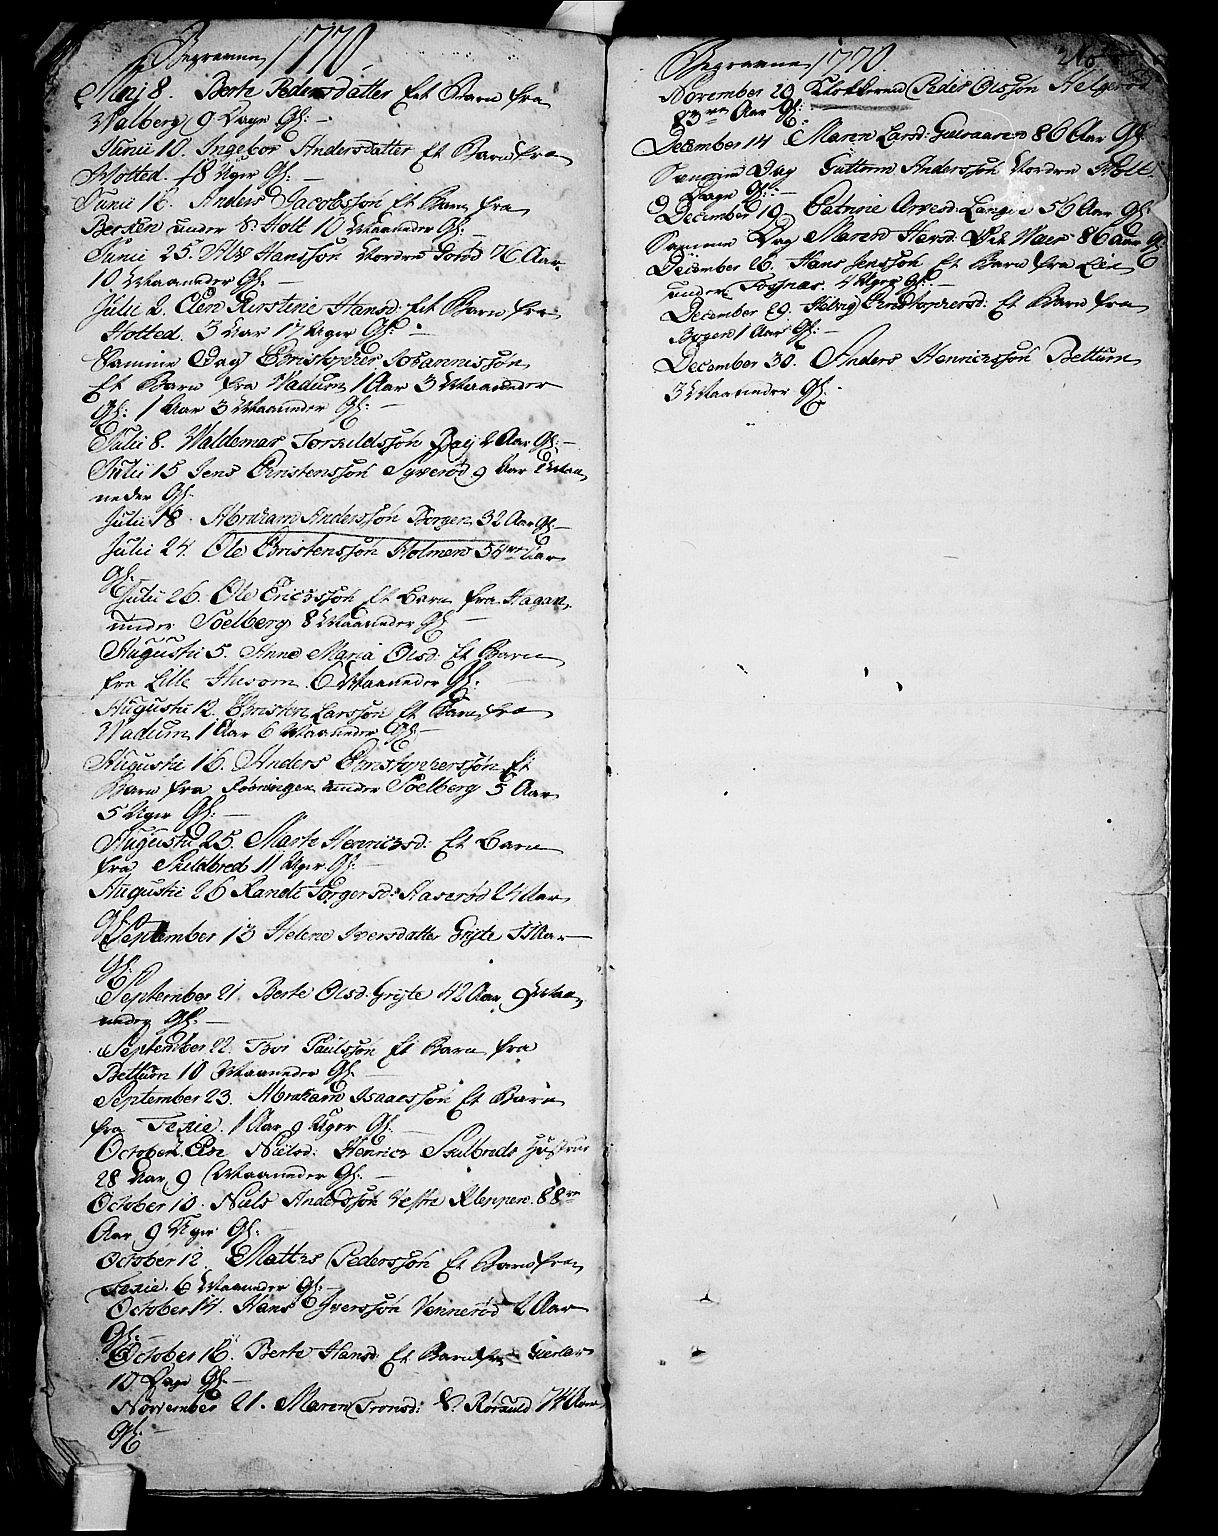 Begravne 1770
Maj 8. Berte Pedersdatter Et Barn fra
Walberg 9 Dage Gl: —
Junii 10. Ingebor Andersdatter Et Barn fra
Holted 18 Uger Gl: —
Junii 16. Anders Jacobssøn Et Barn fra
Bersen under S: Holt 10 Maaneder Gl: —
Junii 25. Hanssøn Nordre 76 Aar
10 Maaneder Gl: —
Julii 2. Elen Kirstine Hansd: Et Barn fra
Holted. 3 Aar 17 Uger Gl: —
Samme Dag Christopher Johannissøn
Et Barn fra Vadum 1 Aar 3 Maaneder
Gl: 1 Aar 3 Maaneder Gl: —
Julii 8. Waldemar Torkildssøn Bay 2 Aar Gl: —
Julii 15 Jens Christenssøn Syverød 9 Aar Maa-
neder Gl:
Julii 18. Abraham Anderssøn Borgen 32 Aar Gl: —
Julii 24. Ole Christenssøn Holmen 56 Aar
Gl:
Julii 26. Ole Ericssøn Et Barn fra Hagan
under Soelberg 8 Maaneder Gl —
Augusti 5. Anne Maria Olsd: Et Barn
fra Lille Husom. 6 Maaneder Gl:
Augusti 12. Christen Larssøn Et Barn fra
Wadum 1 Aar 6 Maaneder Gl: —
Augusti 16. Anders Christopherssøn Et
Barn fra under Soelberg 5 Aar
5 Uger Gl: —
Augusti 25. Marte Henricsd: Et Barn
fra Skildbred 11 Uger Gl: —
Augusti 26 Randi Torgersd: Haserød 24 Aar
Gl:
September 13 Helene Iversdatter Grijte Aar —
Gl:
September 21. Berte Olsd: Grijte 42 Aar 9 Maa-
neder Gl: —
September 22. Thor Paulssøn Et Barn fra
Bettum 10 Maaneder Gl: —
September 23. Abraham Isaacssøn Et Barn
fra Texie. 1 Aar 9 Uger Gl: —
October 2. Else Nielsd: Henrics Skilbreds Hustrue
28 Aar 9 Maaneder Gl: —
October 10. Niels Anderssøn Vestre Kleppen 88
Aar 9 Uger Gl: —
October 12. Mattis Pederssøn Et Barn fra
Texie. 6 Maaneder Gl: —
October 14. Hans Iverssøn Vennerød 2 Aar
Gl: —
October 16. Berte Hansd: Et Barn fra
10 Dage Gl: —
November 21. Maren Tronsd: S: Røraald 74 Aar
Gl: —
Begravne 1770
November 29 Klokkeren Peder Olssøn Helgerød
83 Aar Gl:
December 14 Maren Larsd: 86 Aar Gl:
Samme Dag Guttorm Anderssøn Nordre Holt
9 Dage Gl: —
December 19 Catrine Arvesd: Langøe 56 Aar Gl:
Samme Dag Maren Hansd: Waer 86 Aar Gl:
December 26. Hans Jenssøn Et Barn fra Lien
under Fossnæs. 4 Uger Gl: —
December 29. Helvig Christophersd: Et Barn fra
Borgen 1 Aar Gl: —
December 30. Anders Henricssøn Bettum
3 Maaneder Gl: —